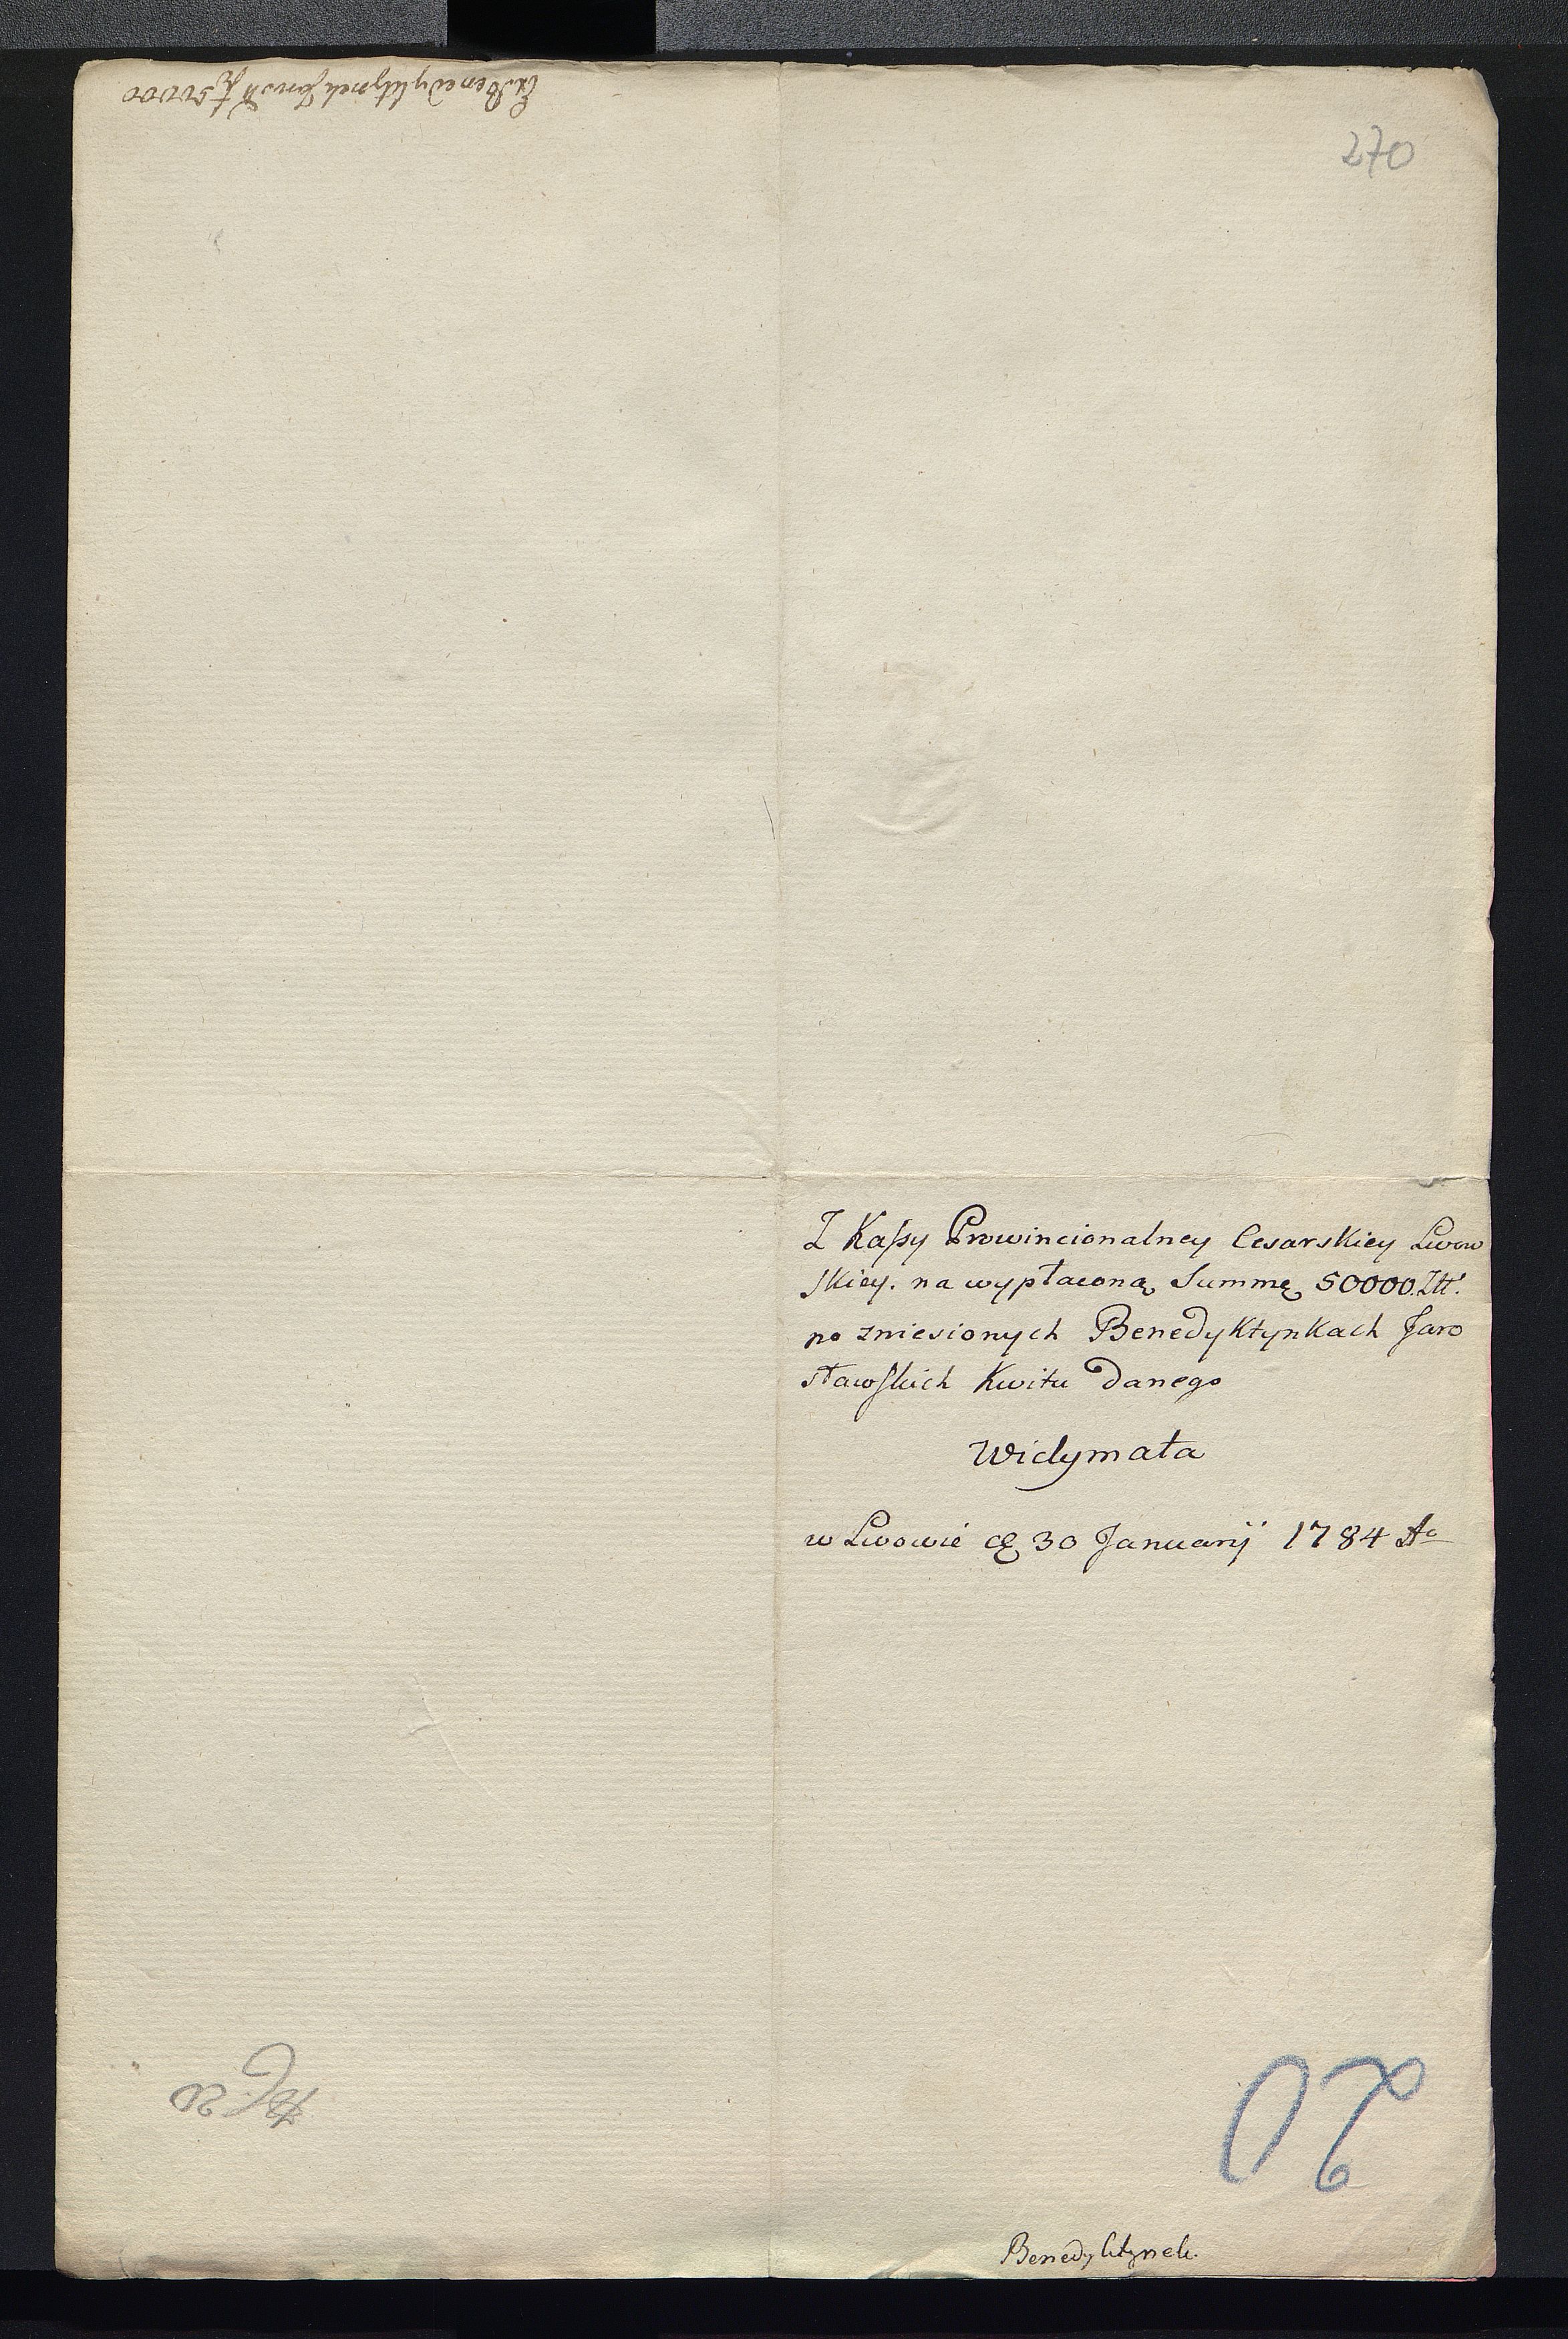 270
Z Kaſsy Prowincionalney Cesarskiey Lwow
skiey. na wypłaconą Summę 50000. Złł.
po zniesionych Benedyktynkach Jaro
sławskich Kwitu danego
Widymata
w Lwowie 30 Januarij 1784 Ao
Benedyktynek.
50000
20